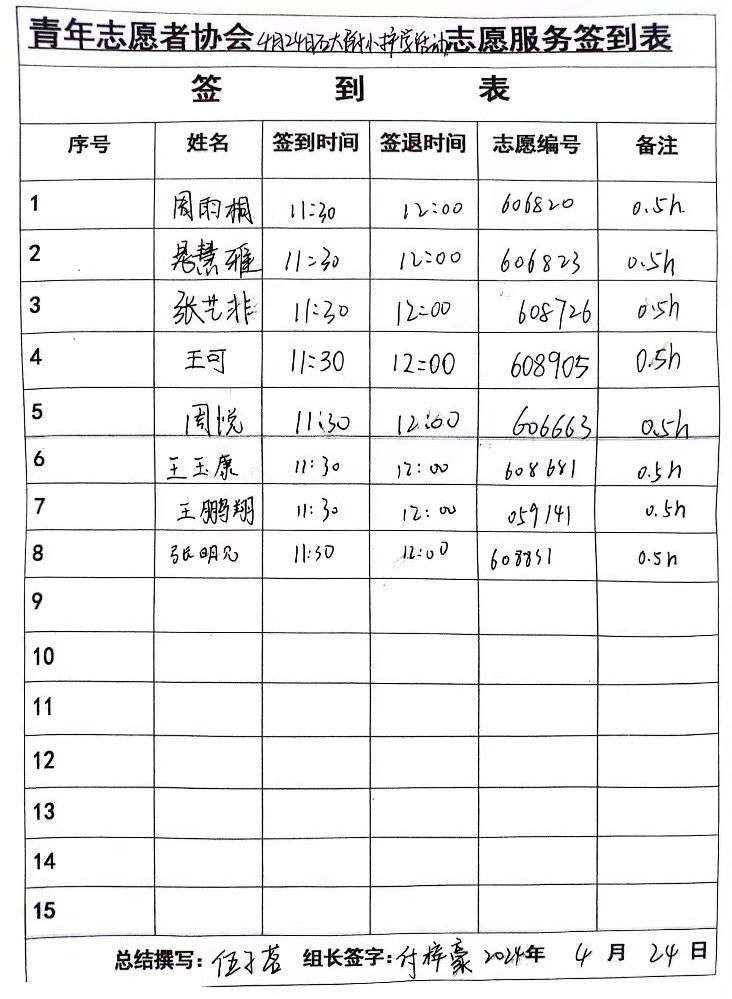 青年志愿者协会4月24日石大附小护学活动志愿服务签到表
签 到 表
序号 姓名 签到时间 签退时间 志愿编号 备注
1 周雨桐 11:30 12:00 606820 0.5h
2 晁慧雅 11:30 12:00 606823 0.5h
3 张艺非 11:30 12:00 608726 0.5h
4 王可 11:30 12:00 608905 0.5h
5 周悦 11:30 12:00 606663 0.5h
6 王玉康 11:30 12:00 608681 0.5h
7 王鹏翔 11:30 12:00 059141 0.5h
8 张明 11:30 12:00 608851 0.5h
9
10
11
12
13
14
15
总结撰写: 伍子茗 组长签字: 付梓豪 2024年 4 月 24 日